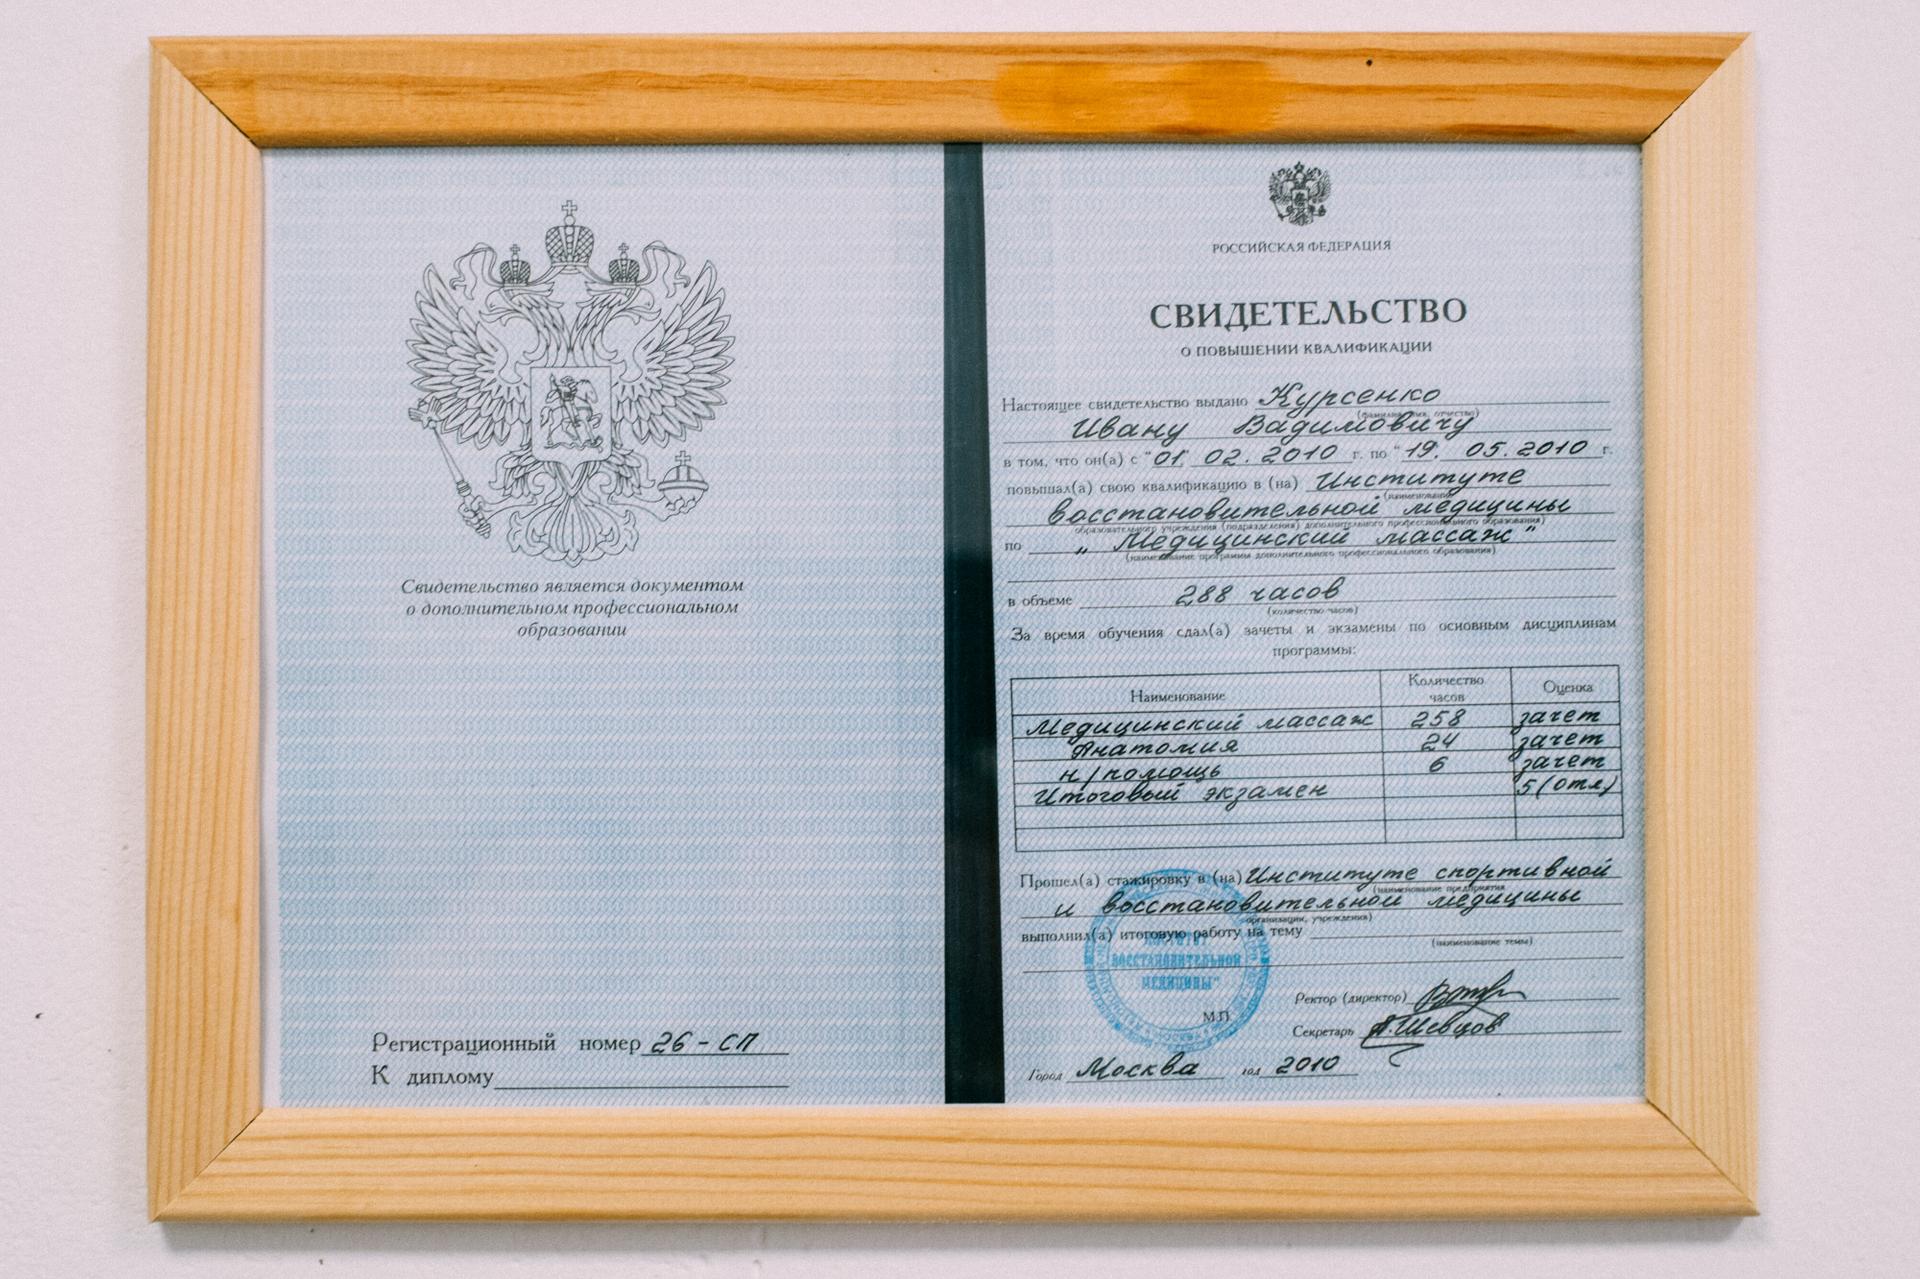 Свидетельство является документом
о дополнительном профессиональном
образовании
Регистрационный номер 26 - СП
К диплому
РОССИЙСКАЯ ФЕДЕРАЦИЯ
СВИДЕТЕЛЬСТВО
О ПОВЫШЕНИИ КВАЛИФИКАЦИИ
Настоящее свидетельство выдано Курсенко
(фамилия, имя, отчество)
Ивану Вадимовичу
в том, что он(а) с "01" 02. 2010 г. по "19. 05. 2010 г.
повышал(а) свою квалификацию в (на) Институте
(наименование
восстановительной медицины
образовательного учреждения (подразделения) дополнительного профессионального образования)
по „ Медицинский массаж "
(наименование программы дополнительного профессионального образования)
в объеме 288 часов
(количество часов)
За время обучения сдал(а) зачеты и экзамены по основным дисциплинам
программы:
Наименование Количество часов Оценка
Медицинский массаж 258 зачет
Анатомия 24 зачет
н/помощь 6 зачет
Итоговый экзамен 5 (отл)
Прошел(а) стажировку в (на) Институте спортивной
(наименование предприятия
и восстановительной медицины
организации, учреждения)
выполнил(а) итоговую работу на тему
(наименование темы)
ВОССТАНОВИТЕЛЬНОЙ
МЕДИЦИНЫ"
Ректор (директор)
М.П.
Секретарь А. Шевцов
Город Москва год 2010